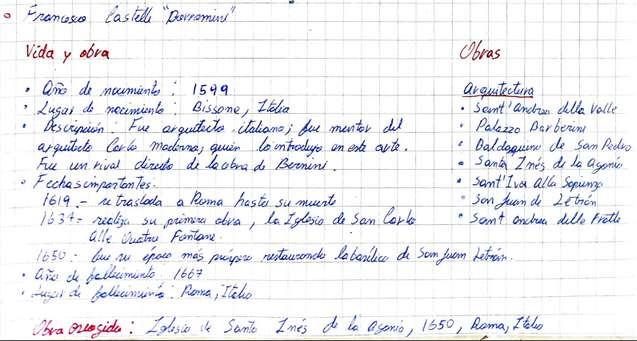 Francesco Castelli "Borromini"
Vida y obra
• Año de nacimiento: 1599
• Lugar de nacimiento: Bissone, Italia
• Descripción: Fue arquitecto italiano; fue mentor del
arquitecto Carlo moderno, quién lo introdujo en este arte.
Fue un rival directo de la obra de Bernini.
• Fechas importantes.
1619.- se traslada a Roma hasta su muerte
1634- realiza su primera obra, la Iglesia de San Carlo
Alle Quatro Fontane.
1650: fue su época más próspera restaurando la basílica de San Juan Letrán.
• Año de fallecimiento: 1667
• Lugar de fallecimiento: Roma, Italia
Obra escogida: Iglesia de Santa Inés de la Agonía, 1650, Roma, Italia
Obras
Arquitectura
• Sant'Andrea della Valle
• Palazzo Barberini
• Baldaquino de San Pedro
• Santa Inés de la Agonía
• Sant'Ivo Alla Sapienza
• San Juan de Letrán
• Sant Andrea delle Fratte